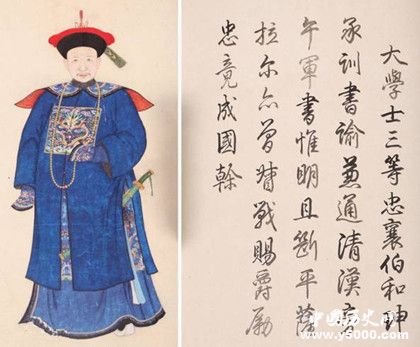 大學士三等忠襄伯和珅
承訓書諭兼通清漢旁
午軍書惟明且斷平薩
拉爾亦曾督戰賜爵勵
忠竟成國幹
中国历史网
www.y5000.com